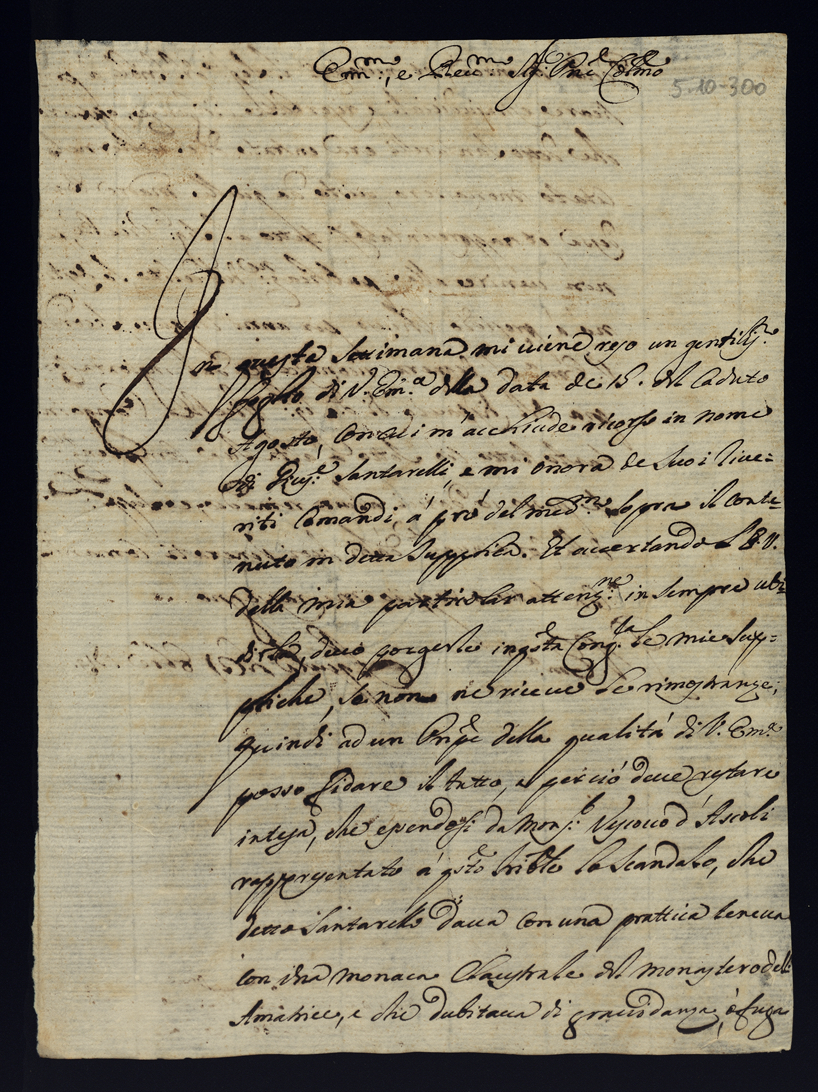 Em.mo, e Rev.mo Sig.r P.ne Col.mo
5-10-300
In questa settimana mi viene reso un gentiliss.o
foglio di V. Em.a della data de 15. del caduto
Agosto, con cui m'acchiude ricorso in nome
di Gius.e Santarelli, e mi onora de suoi rive=
riti Comandi, á pró del med.mo sopra il conte=
nuto in detta supplica. Et accertando l'E.V.
della mia particolar attenz.ne in sempre ubi=
dirla, devo porgerle in q.sta Cong.ra le mie sup=
pliche, se non ne riceve le rimostranze;
quindi ad un Pn̄pe della qualitá di V. Em.a
posso fidare il tutto, e perció deve restare
intesa, che essendosi da Mons.r Vescovo d'Ascoli
rappresentato á q.sto Trib.le lo scandalo, che
detto Santarelli dava con una prattica teneva
con una monaca Claustrale del monastero dell
Amatrice, e che dubitava di gravidanza, ó fuga